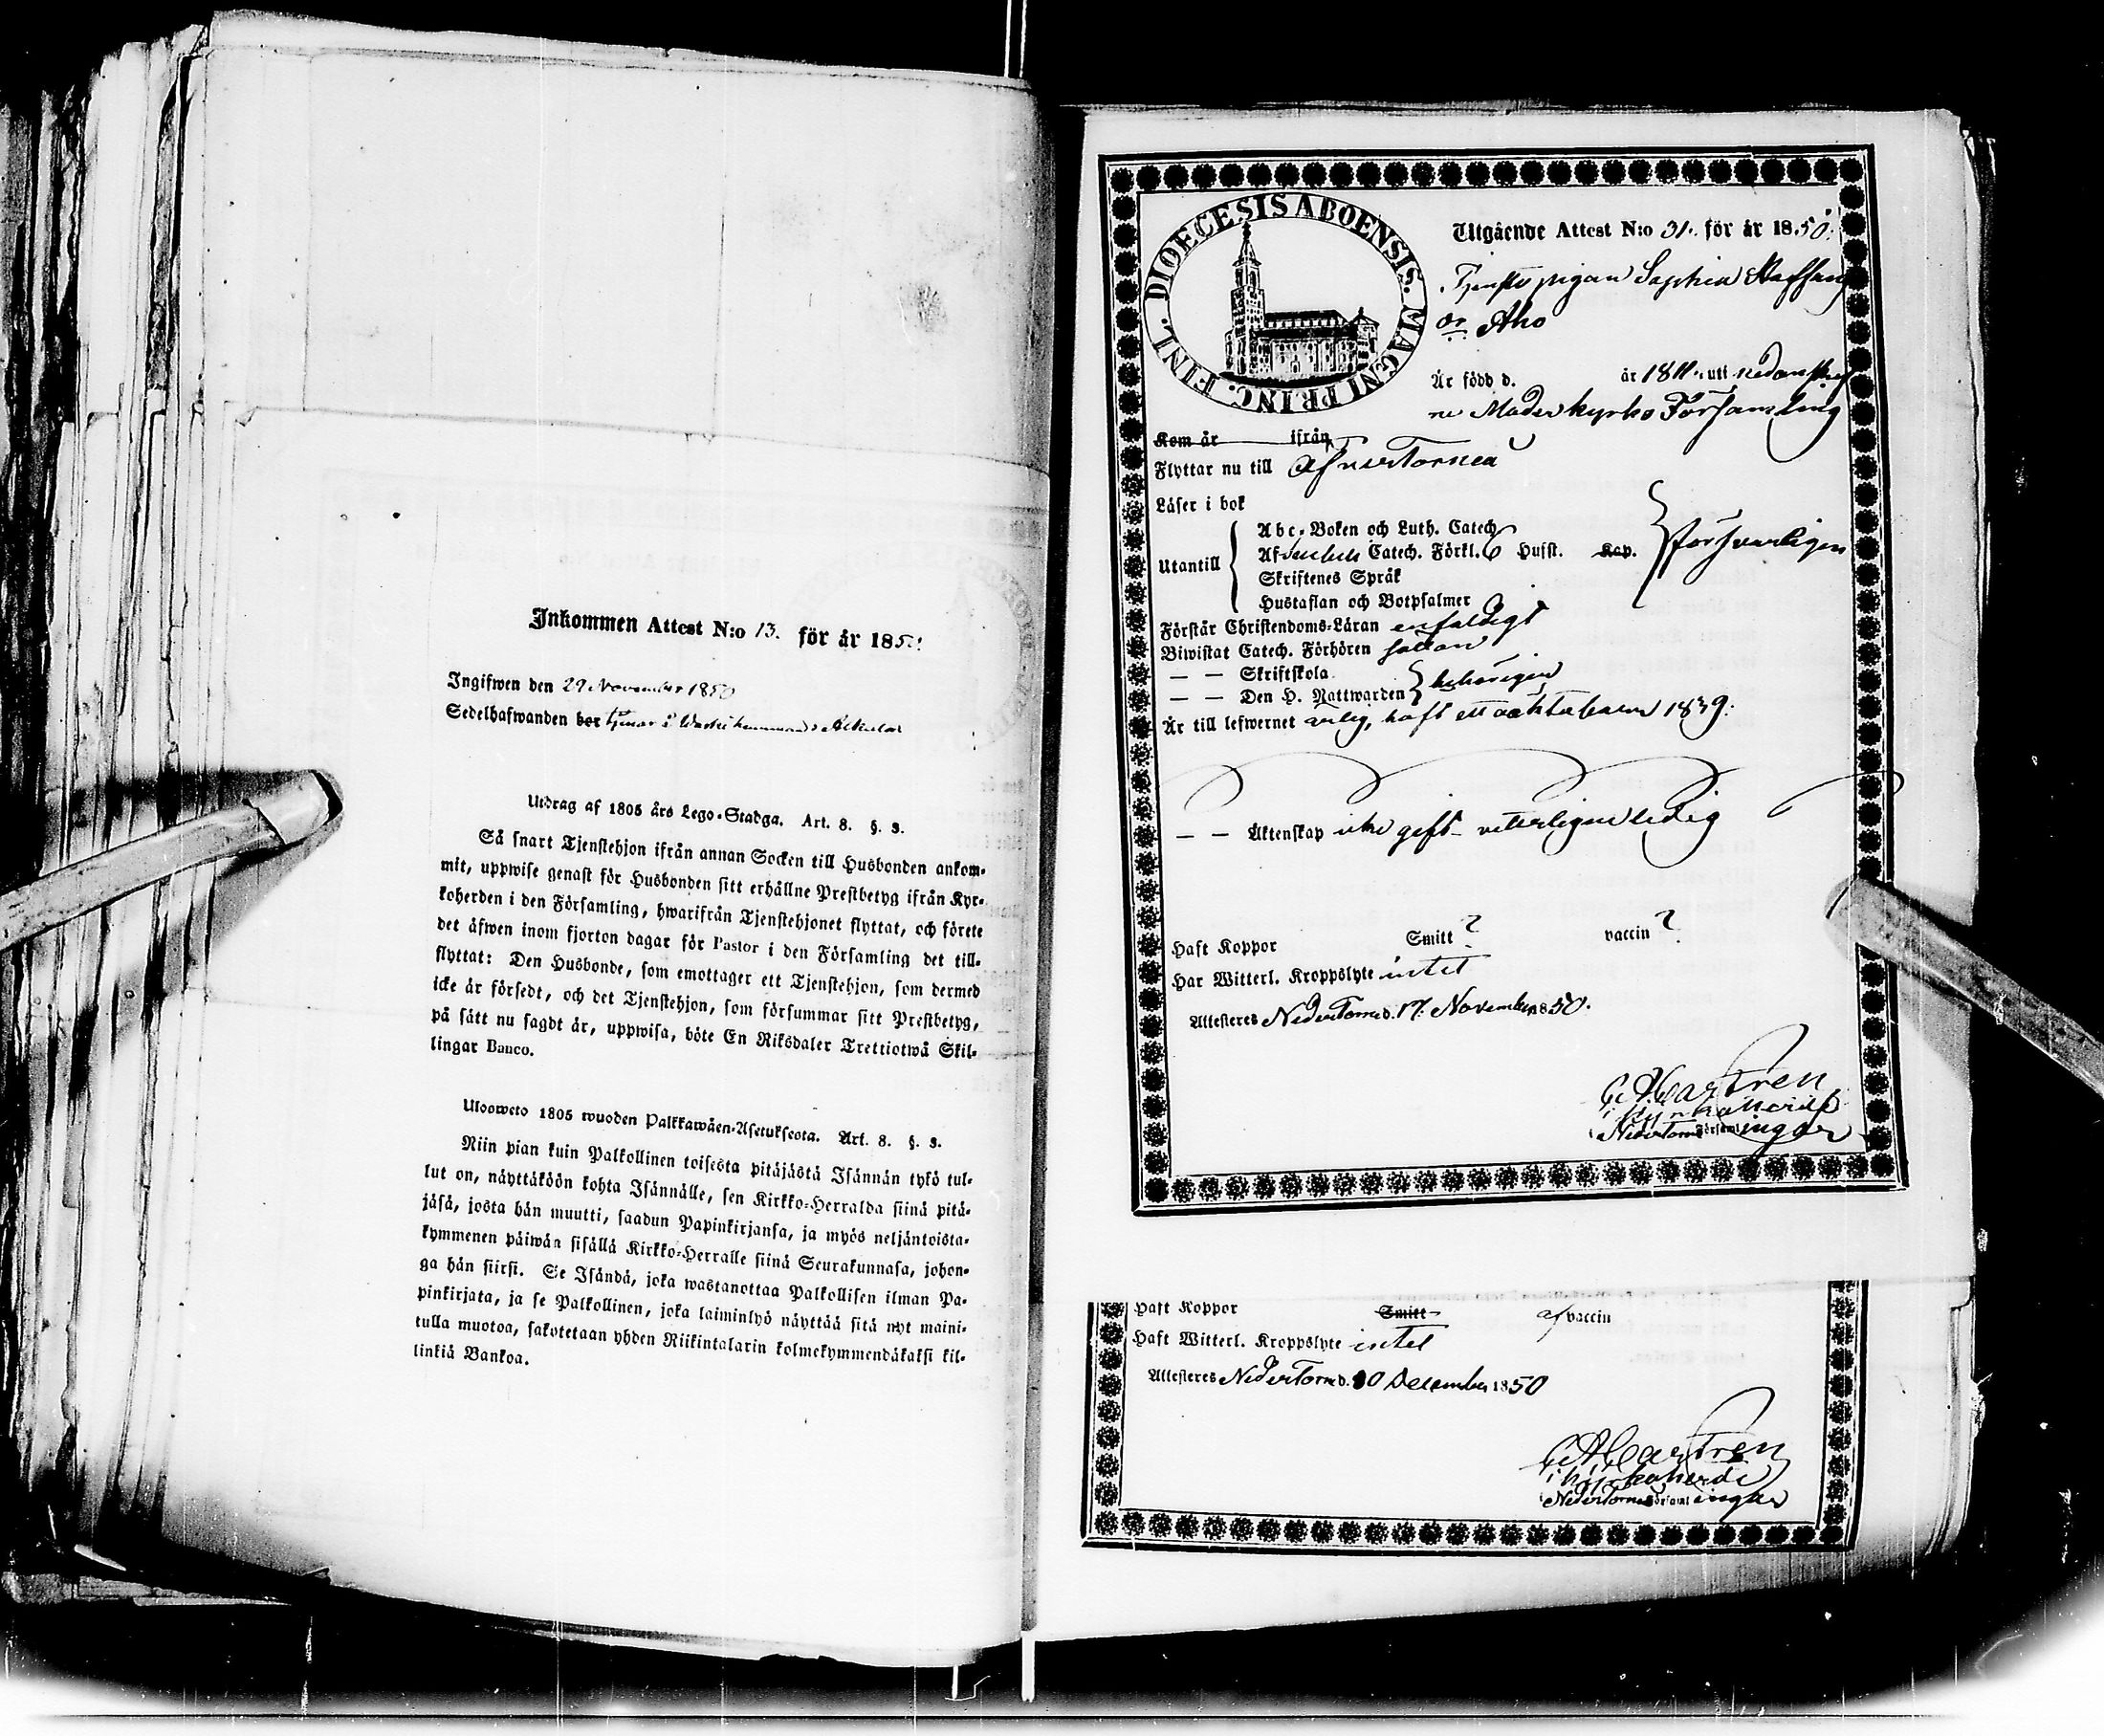 Inkommen Attest N:o 13. för år 185
Ingifwen den 29 November 1850
Sedelhafwanden bor tjenar å
Utdrag af 1805 års Lego-Stadga. Art. 8. §. 3.
Så snart Tjenstehjon ifrån annan Socken till Husbonden ankom-
mit, uppwise genast för Husbonden sitt erhållne Prestbetyg ifrån Kyr-
koherden i den Församling, hwarifrån Tjenstehjonet flyttat, och förete
det äfwen inom fjorton dagar för Pastor i den Församling det till-
flyttat: Den Husbonde, som emottager ett Tjenstehjon, som dermed
icke är försedt, och det Tjenstehjon, som försummar sitt Prestbetyg,
på sätt nu sagdt är, uppwisa, böte En Riksdaler Trettiotwå Skil-
lingar Banco.
Uloosweto 1805 wuoden Palkkawäen-Asetuksesta. Art. 8. §. 3.
Niin pian kuin Palkollinen toisesta pitäjästä Isännän tykö tul-
lut on, näyttäköön kohta Isännälle, sen Kirkko-Herralda siinä pitä-
jäsä, josta hän muutti, saadun Papinkirjansa, ja myös neljäntoista-
kymmenen päiwän sisällä Kirkko-Herralle siinä Seurakunnasa, johon-
ga hän siirsi. Se Isändä, joka wastanottaa Palkollisen ilman Pa-
pinkirjata, ja se Palkollinen, joka laiminlyö näyttää sitä nyt maini-
tulla muotoa, sakotetaan yhden Riikintalarin kolmekymmendäkaksi kil-
linkiä Bankoa.
DIOECESIS ABOENSIS. MAGNI PRINC. FINL.
Utgående Attest N:o 31. för år 1850.
Tjenste pigan Sophia Staffans
dr. Aho
Är född d. år 1811. uti nedanskref
ne Moderkyrko Församling
Kom år ifrån
Flyttar nu till öfverTorneå
Läser i bok
Utantill
Abc-Boken och Luth. Catech
Af Catech. Förkl. Husst. Kap. försvarligen
Skriftenes Språk
Hustaflan och Botpsalmer
Förstår Christendoms-Läran enfaldigt
Biwistat Catech. Förhören sällan
— — Skriftskola
— — Den H. Nattwarden behörigen
Är till lefwernet ärlig, haft ett oäkta barn 1839.
— — Äktenskap icke gift veterligen ledig
Haft Koppor Smitt ? vaccin ?
Har Witterl. Kroppslyte intet
Attesteres NederTorneå d. 17. November 1850.
C A Castren
i Kyrkoherde
NederTorneå Församlingar
Haft Koppor Smitt af vaccin
Haft Witterl. Kroppslyte intet
Attesteres NederTorneå d. 10 December 1850
C A Castren
i kyrkoherde
NederTorneå Församlingar